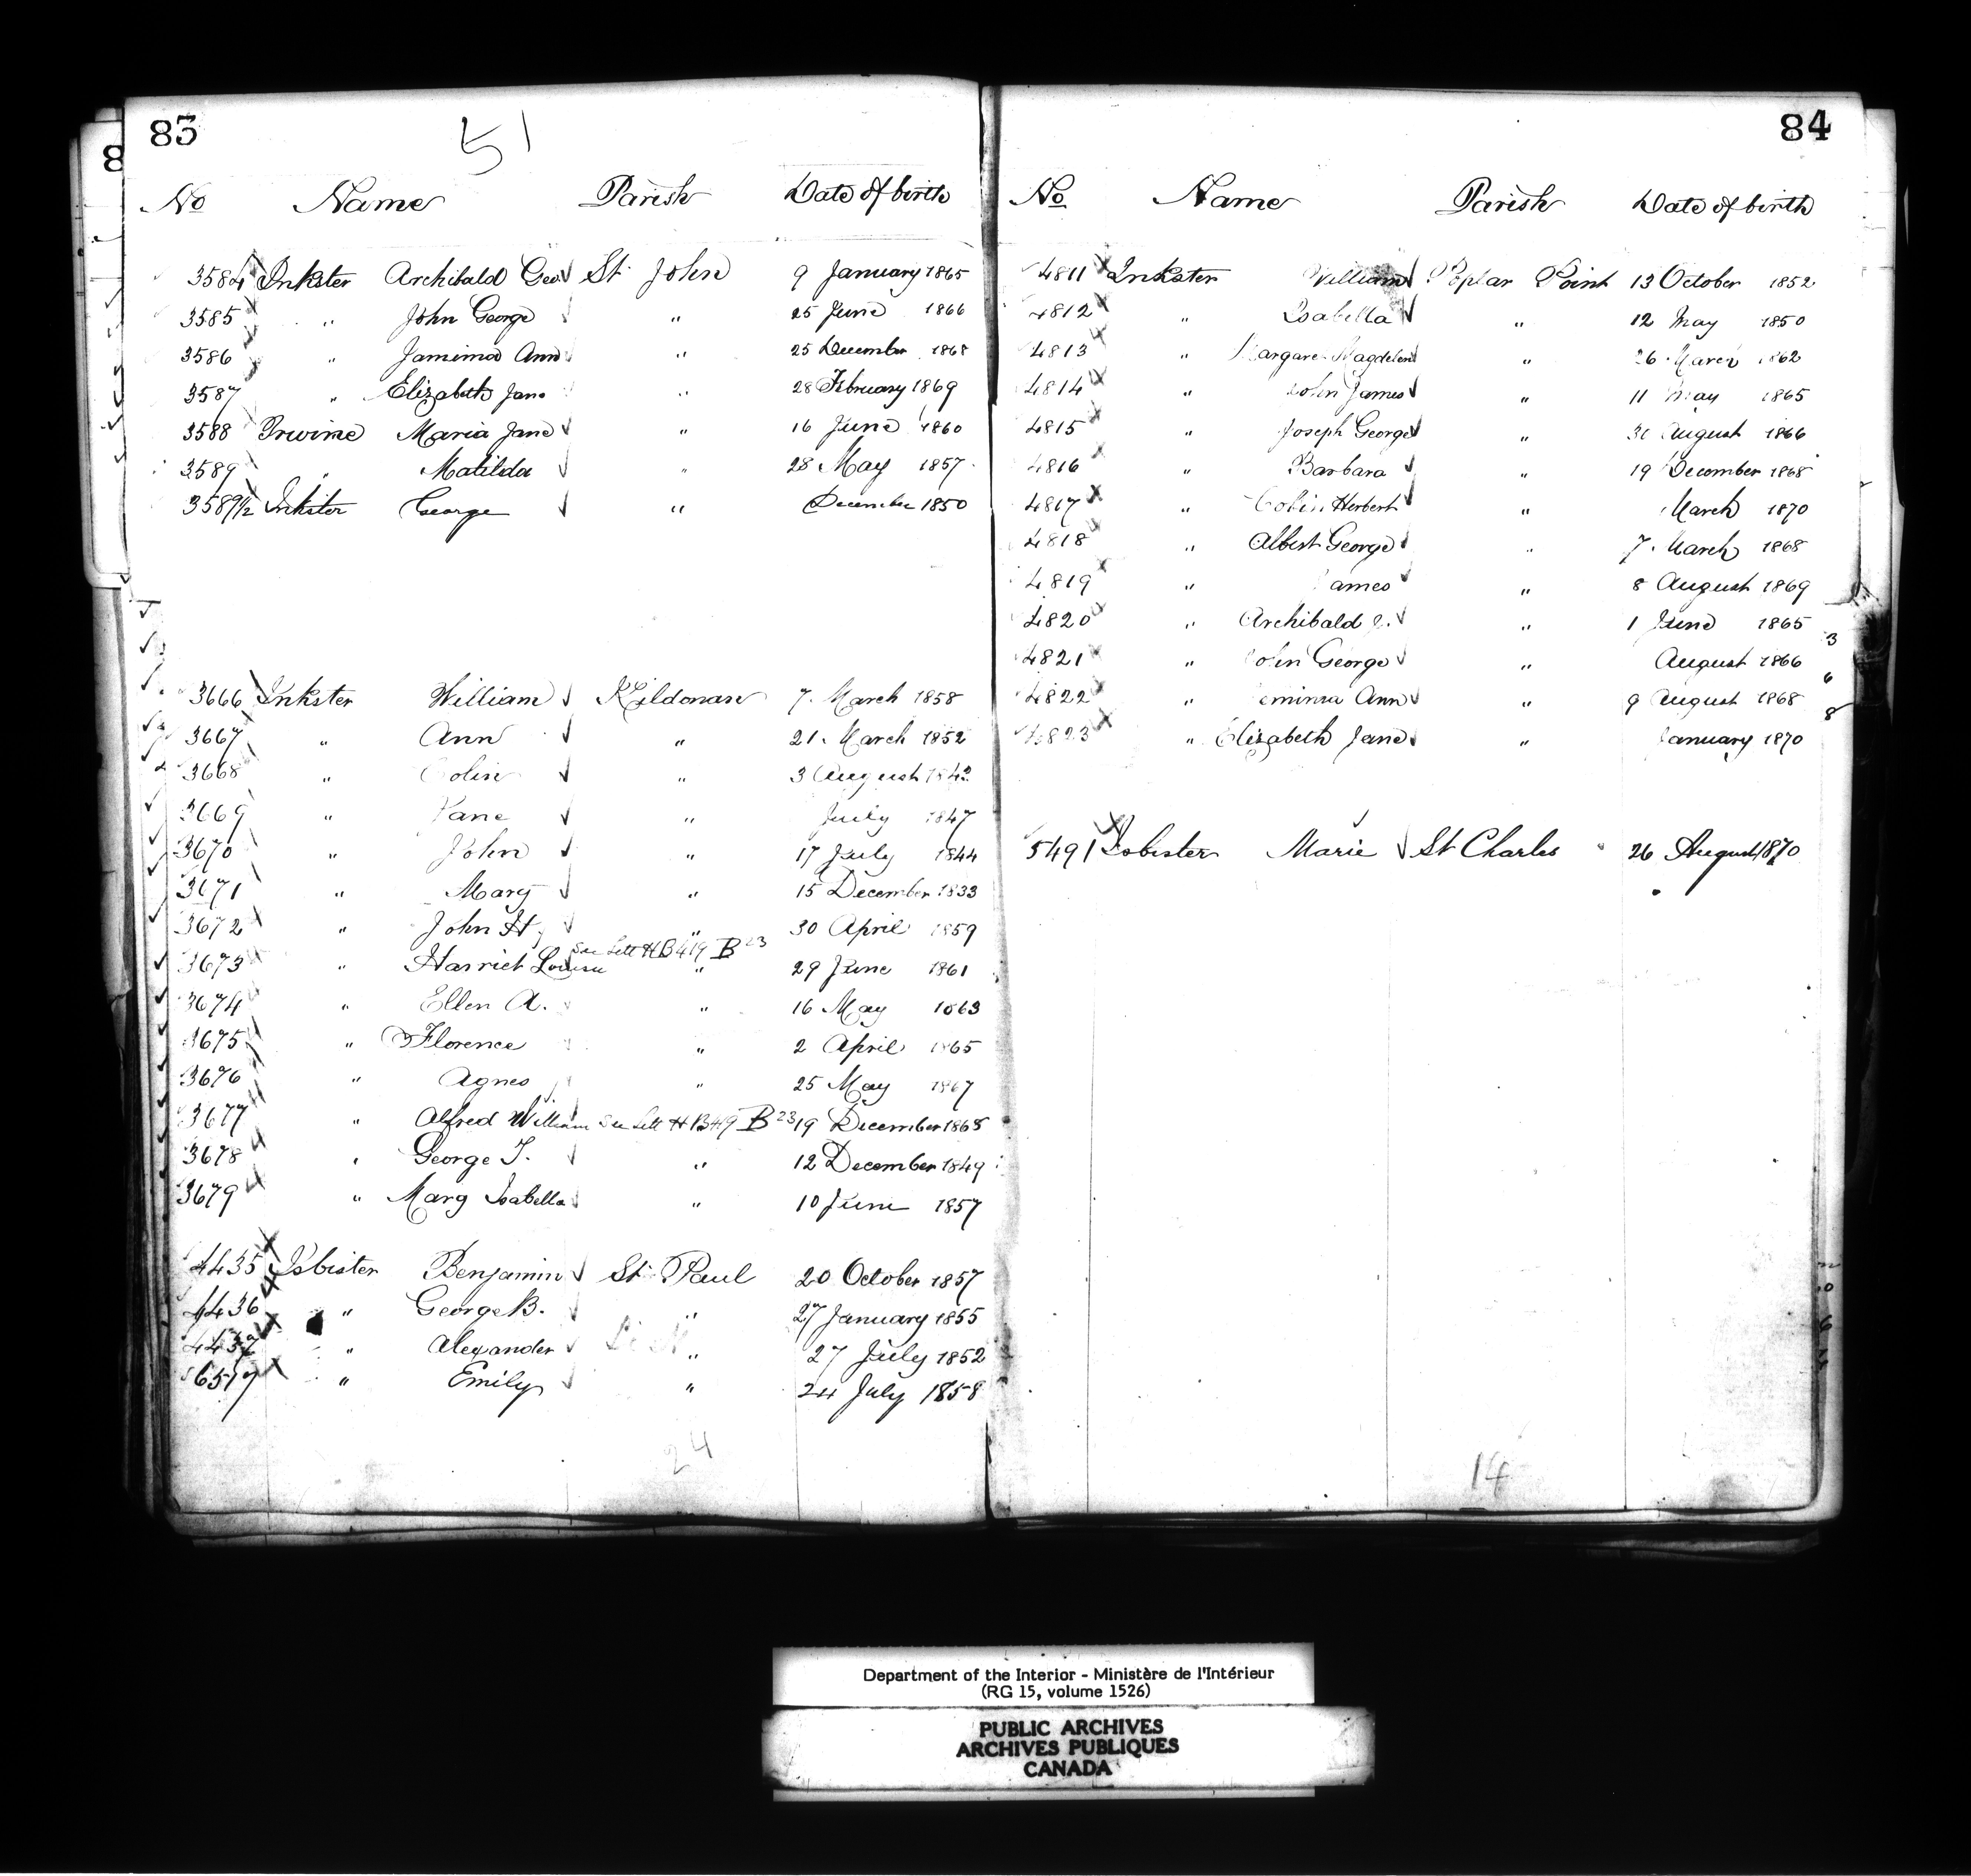 83
51
No Name Parish Date of birth
3584 Inkster Archibald Geo St John 9 January 1865
3585 " John George " 25 June 1866
3586 " Jamima Ann " 25 December 1868
3587 " Elizabeth Jane " 28 February 1869
3588 Irwine Maria Jane " 16 June 1860
3589 " Matilda " 28 May 1857
3589 1/2 Inkster George " December 1850
3666 Inkster William Kildonan 7 March 1858
3667 " Ann " 21 March 1852
3668 " Colin " 3 August 1842
3669 " Jane " July 1847
3670 " John " 17 July 1844
3671 " Mary " 15 December 1833
3672 " John H " 30 April 1859
See Lett HB 419 B 23
3673 " Harriet Louisa " 29 June 1861
3674 " Ellen A. " 16 May 1863
3675 " Florence " 2 April 1865
3676 " Agnes " 25 May 1867
3677 " Alfred William See Lett HB 419 B 23 19 December 1868
3678 " George T. " 12 December 1849
3679 " Marg Isabella " 10 June 1857
4435 Isbister Benjamin St Paul 20 October 1857
4436 " George B. " 27 January 1855
4437 " Alexander " 27 July 1852
6517 " Emily " 24 July 1858
24
84
No Name Parish Date of birth
4811 Inkster William Poplar Point 13 October 1852
4812 " Isabella " 12 May 1850
4813 " Margaret Magdelen " 26 March 1862
4814 " John James " 11 May 1865
4815 " Joseph George " 31 August 1866
4816 " Barbara " 19 December 1868
4817 " Colin Herbert " March 1870
4818 " Albert George " 7 March 1868
4819 " James " 8 August 1869
4820 " Archibald J. " 1 June 1865
4821 " John George " August 1866
4822 " Jemima Ann " 9 August 1868
4823 " Elizabeth Jane " January 1870
5491 Isbister Marie St Charles 26 August 1870
14
Department of the Interior - Ministère de l'Intérieur
(RG 15, volume 1526)
PUBLIC ARCHIVES
ARCHIVES PUBLIQUES
CANADA